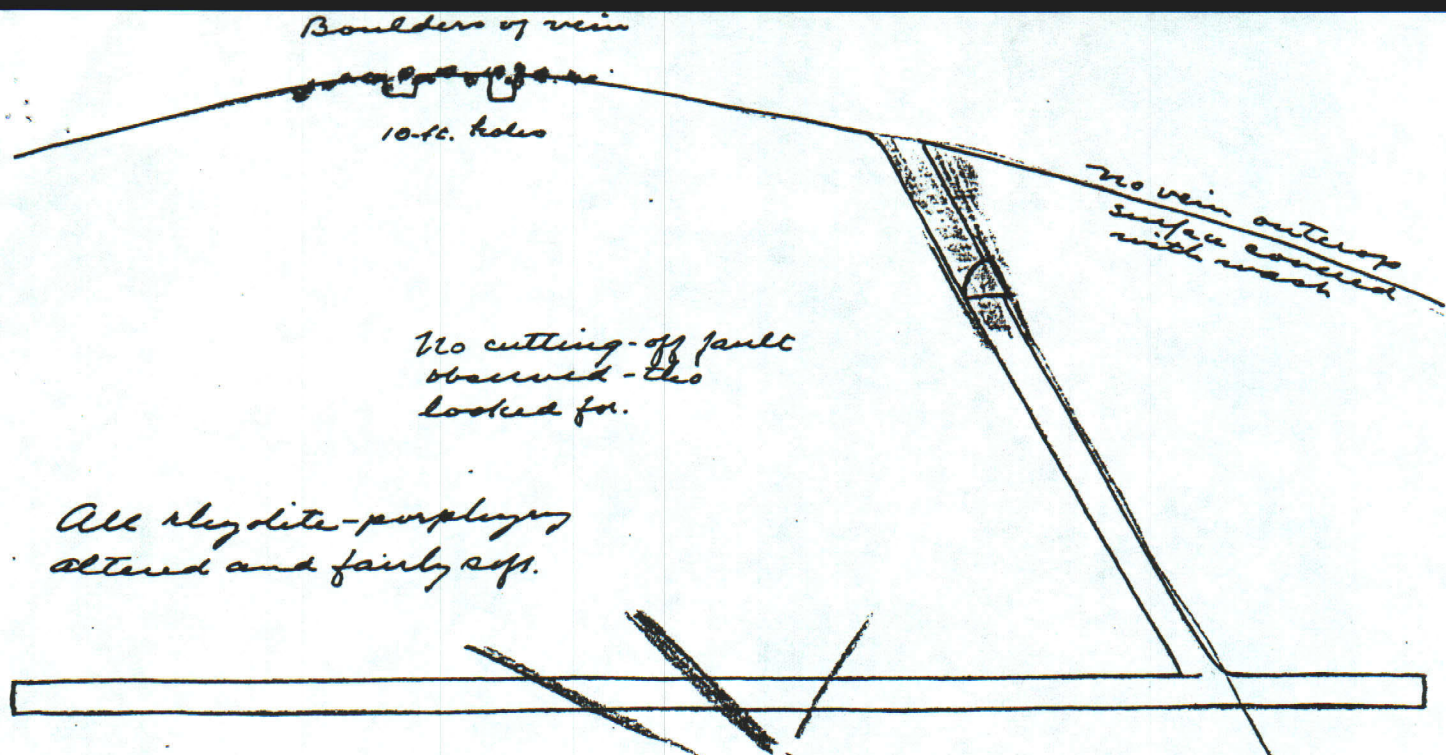 Boulders of vein
10-ft. holes
No vein outcrop
surface covered
with wash
No cutting-off fault
observed - tho
looked for.
All rhyolite-porphyry
altered and fairly soft.